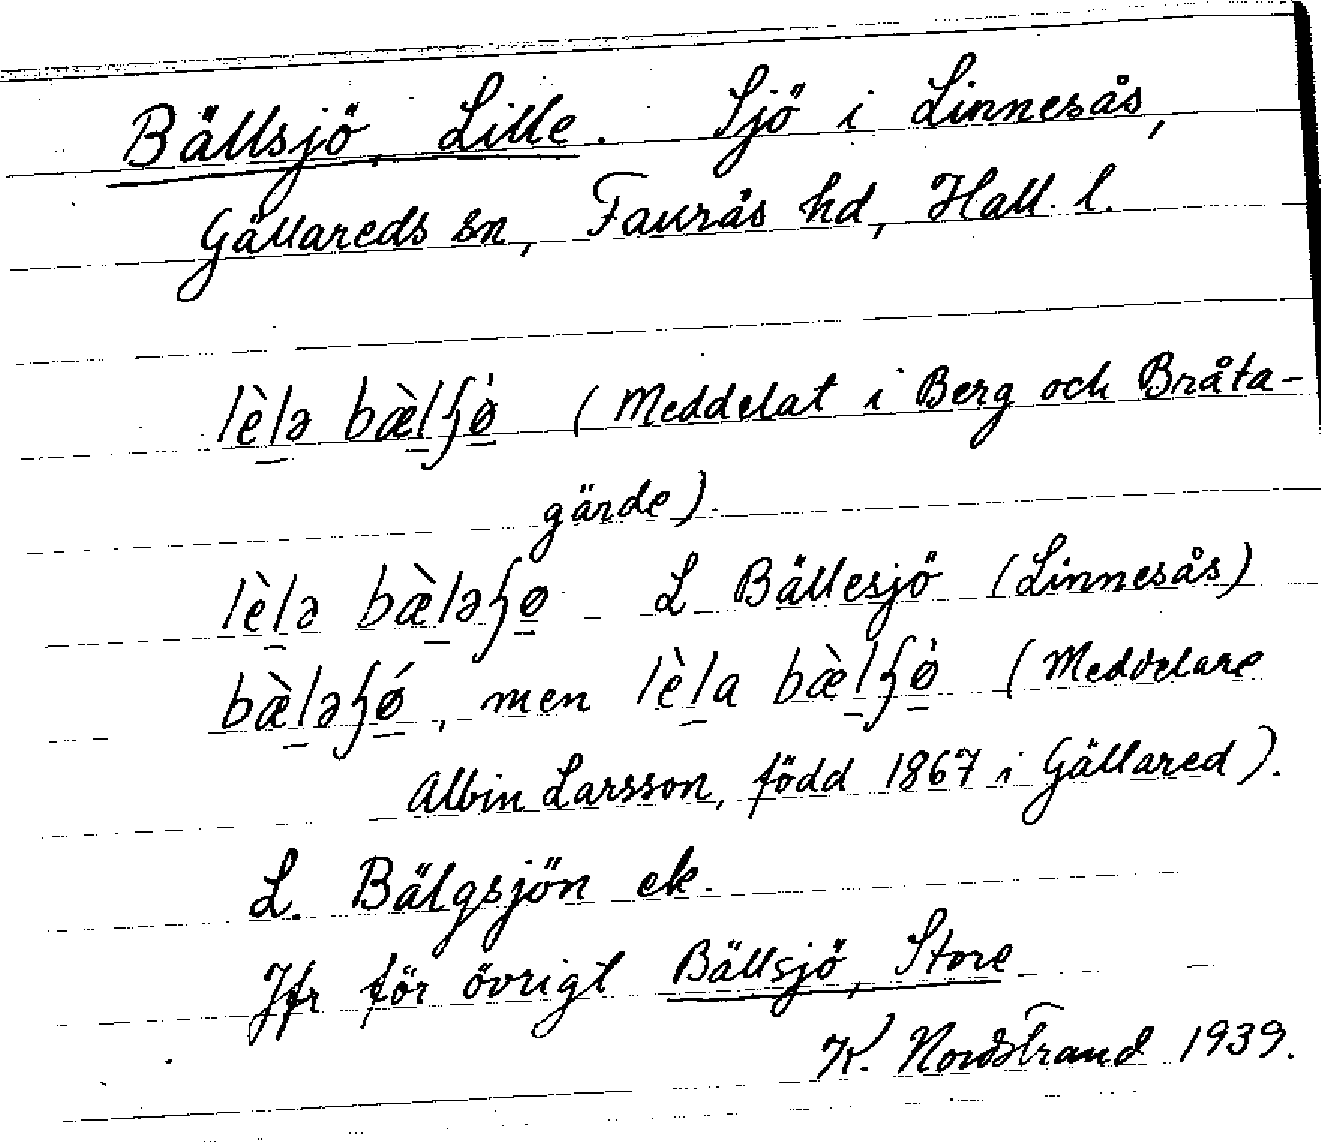 Bällsjö, Lille. Sjö i Linnesås,
Gällareds sn, Faurås hd, Hall. l.
lè̱lə bæ̀ḻʃø̱̀ (Meddelat i Berg och Bråta-
gärde).
lèḻə bæ̀ḻəʃø̱ L Bällesjö (Linnesås)
bæ̀ḻəʃǿ̱, men lèḻa bæ̀ḻʃø̱̀ (Meddelare
Albin Larsson, född 1867 i Gällared).
L. Bälgsjön ek.
Jfr för övrigt Bällsjö, Store
K. Nordstrand 1939.